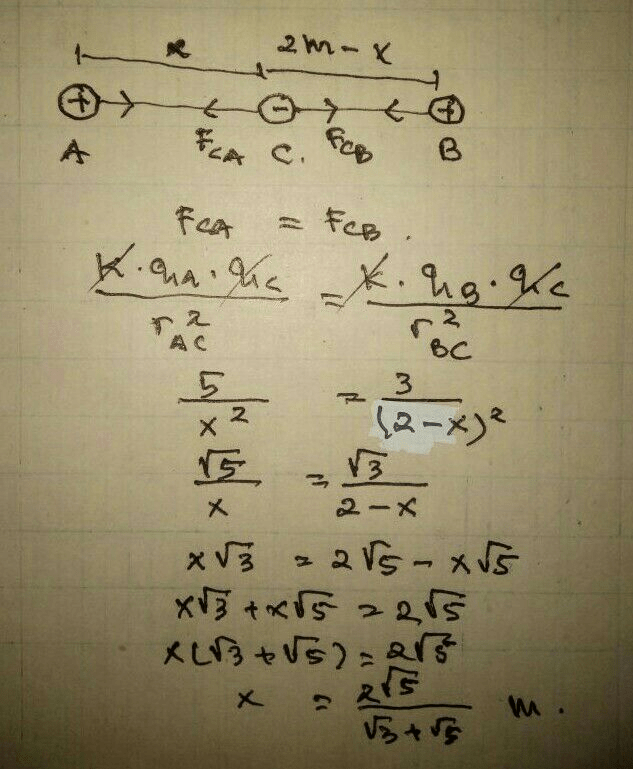 x 2m - x
+ - +
A F_CA C. F_CB B
F_CA = F_CB.
K · q_A · q_C / r_AC² = K · q_B · q_C / r_BC²
5 / x² = 3 / (2 - x)²
√5 / x = √3 / 2 - x
x√3 = 2√5 - x√5
x√3 + x√5 = 2√5
x(√3 + √5) = 2√5
x = 2√5 / √3 + √5 m.